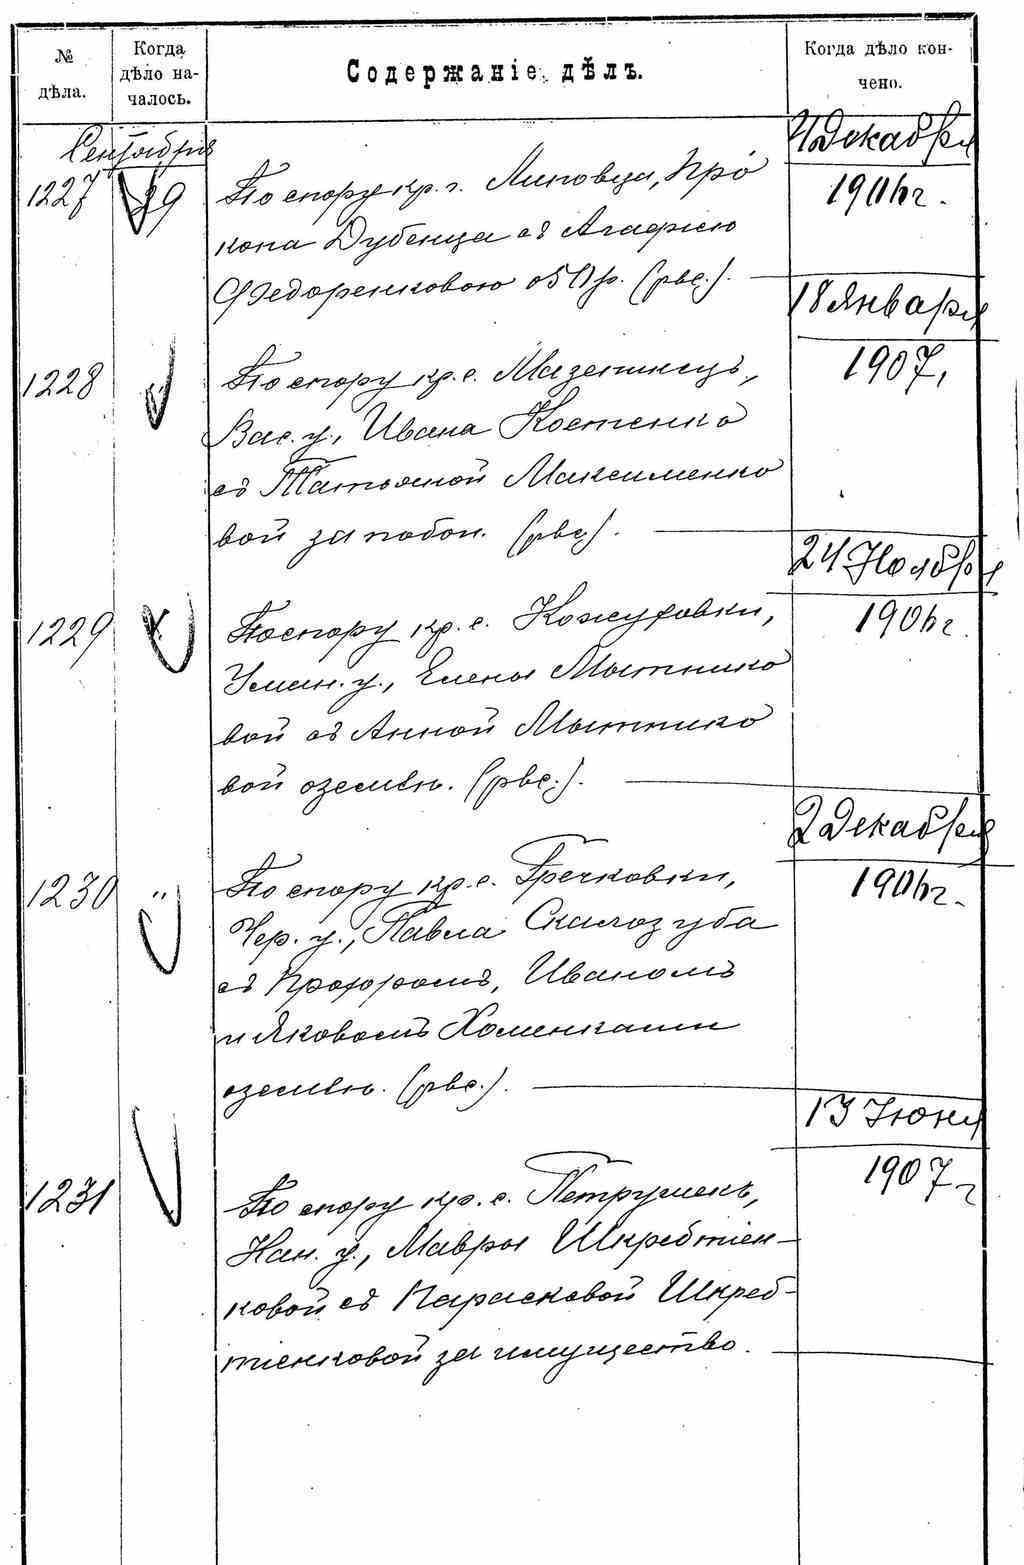 № дѣла.
Когда дѣло на-
чалось.
Содержаніе дѣлъ.
Когда дѣло кон-
чено.
Сентября
1227
29
По спору кр. г. Липовца, Про
копа Дубенца съ Агафіею
Федоренковою о 50 р. (рвс.).
4 Декабря
1906 г.
1228
По спору кр. с. Мазепинецъ,
Вас. у., Ивана Костенко
съ Татьяной Максименко
вой за побои. (рвс.).
18 Января
1907,
1229
По спору кр. с. Кожуховки,
Уман. у., Елены Мытнико
вой съ Анной Мытнико
вой о землѣ. (рвс.).
24 Ноября
1906 г.
1230
"
По спору кр. с. Гречковки,
Чер. у., Павла Скалозуба
съ Прохоромъ, Иваномъ
и Яковомъ Хоменками
о землѣ. (рвс.).
2 Декабря
1906 г.
1231
По спору кр. с. Петрушекъ,
Кан. у., Мавры Шкребтіен-
ковой съ Парасковой Шкреб-
тіенковой за имущество.
13 Іюня
1907 г